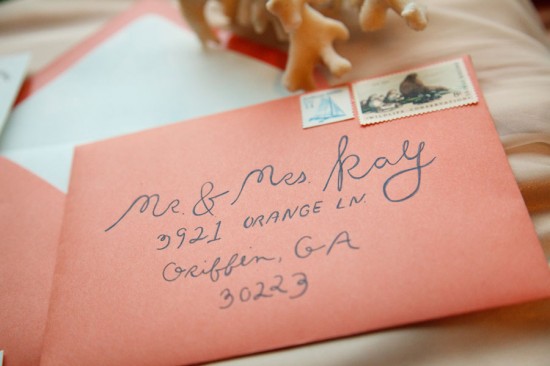 Mr. & Mrs. Kay
3921 ORANGE LN.
Griffin, GA
30223
WILDLIFE CONSERVATION